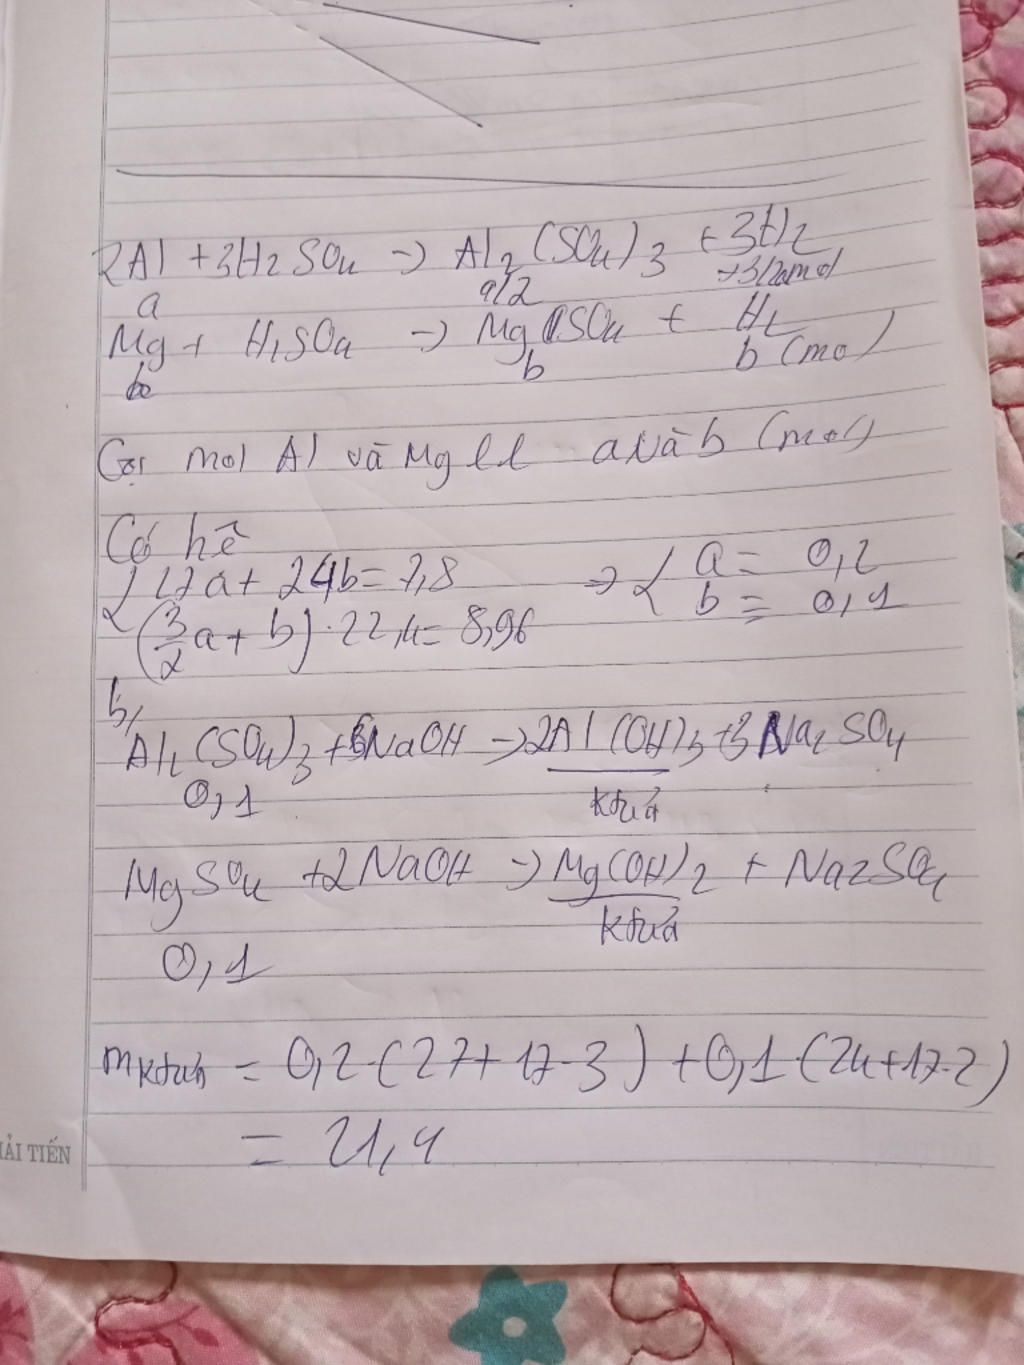 2Al + 3H2SO4 → Al2(SO4)3 + 3H2
a a/2 →3/2a mol
Mg + H2SO4 → MgSO4 + H2
b b b (mol)
Gọi mol Al và Mg ll a và b (mol)
Có hệ
{ 27a + 24b = 7,8 → { a = 0,2
(3/2a + b).22,4 = 8,96 b = 0,1
b,
Al2(SO4)3 + 6NaOH → 2Al(OH)3 + 3Na2SO4
0,1 ktủa
MgSO4 + 2NaOH → Mg(OH)2 + Na2SO4
ktủa
0,1
mktủa = 0,2.(27+17.3) + 0,1.(24+17.2)
= 21,4
ẢI TIẾN